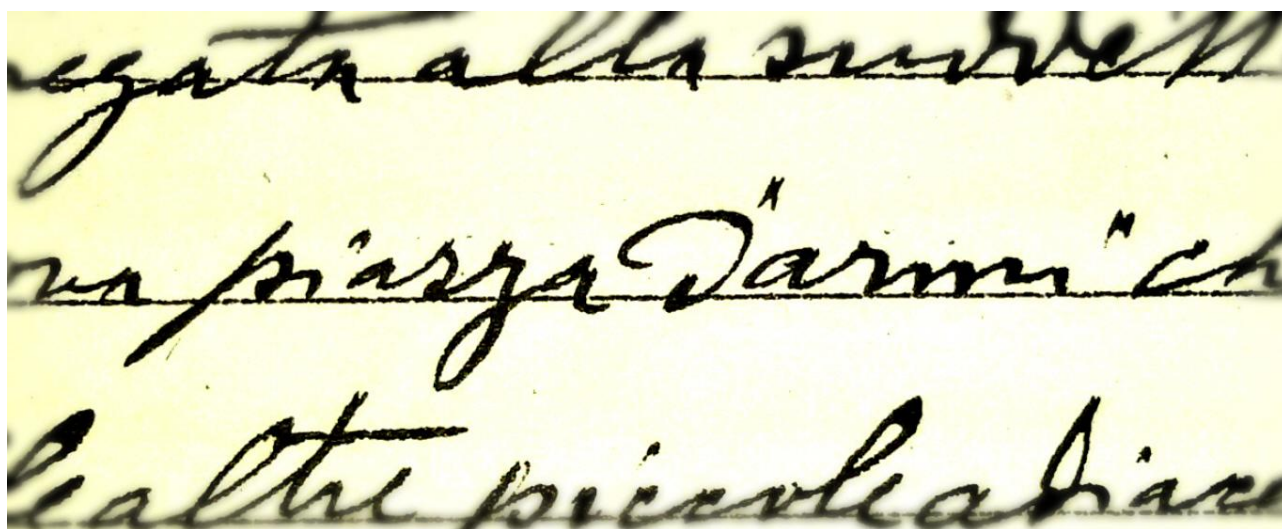 egata alla suddett
va piazza D'armi" ch
le altre piccole adiace